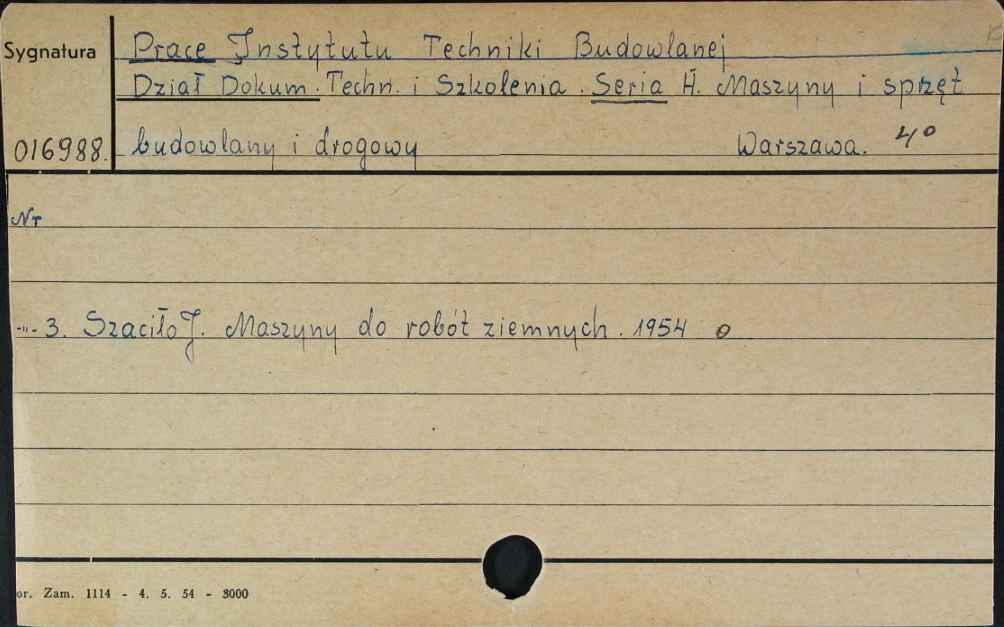 Sygnatura
Prace Instytutu Techniki Budowlanej
Dział Dokum. Techn. i Szkolenia. Seria H. Maszyny i sprzęt
016988. budowlany i drogowy Warszawa. 4°
Nr
-"- 3. Szaciło J. Maszyny do robót ziemnych. 1954 o
or. Zam. 1114 - 4. 5. 54 - 3000